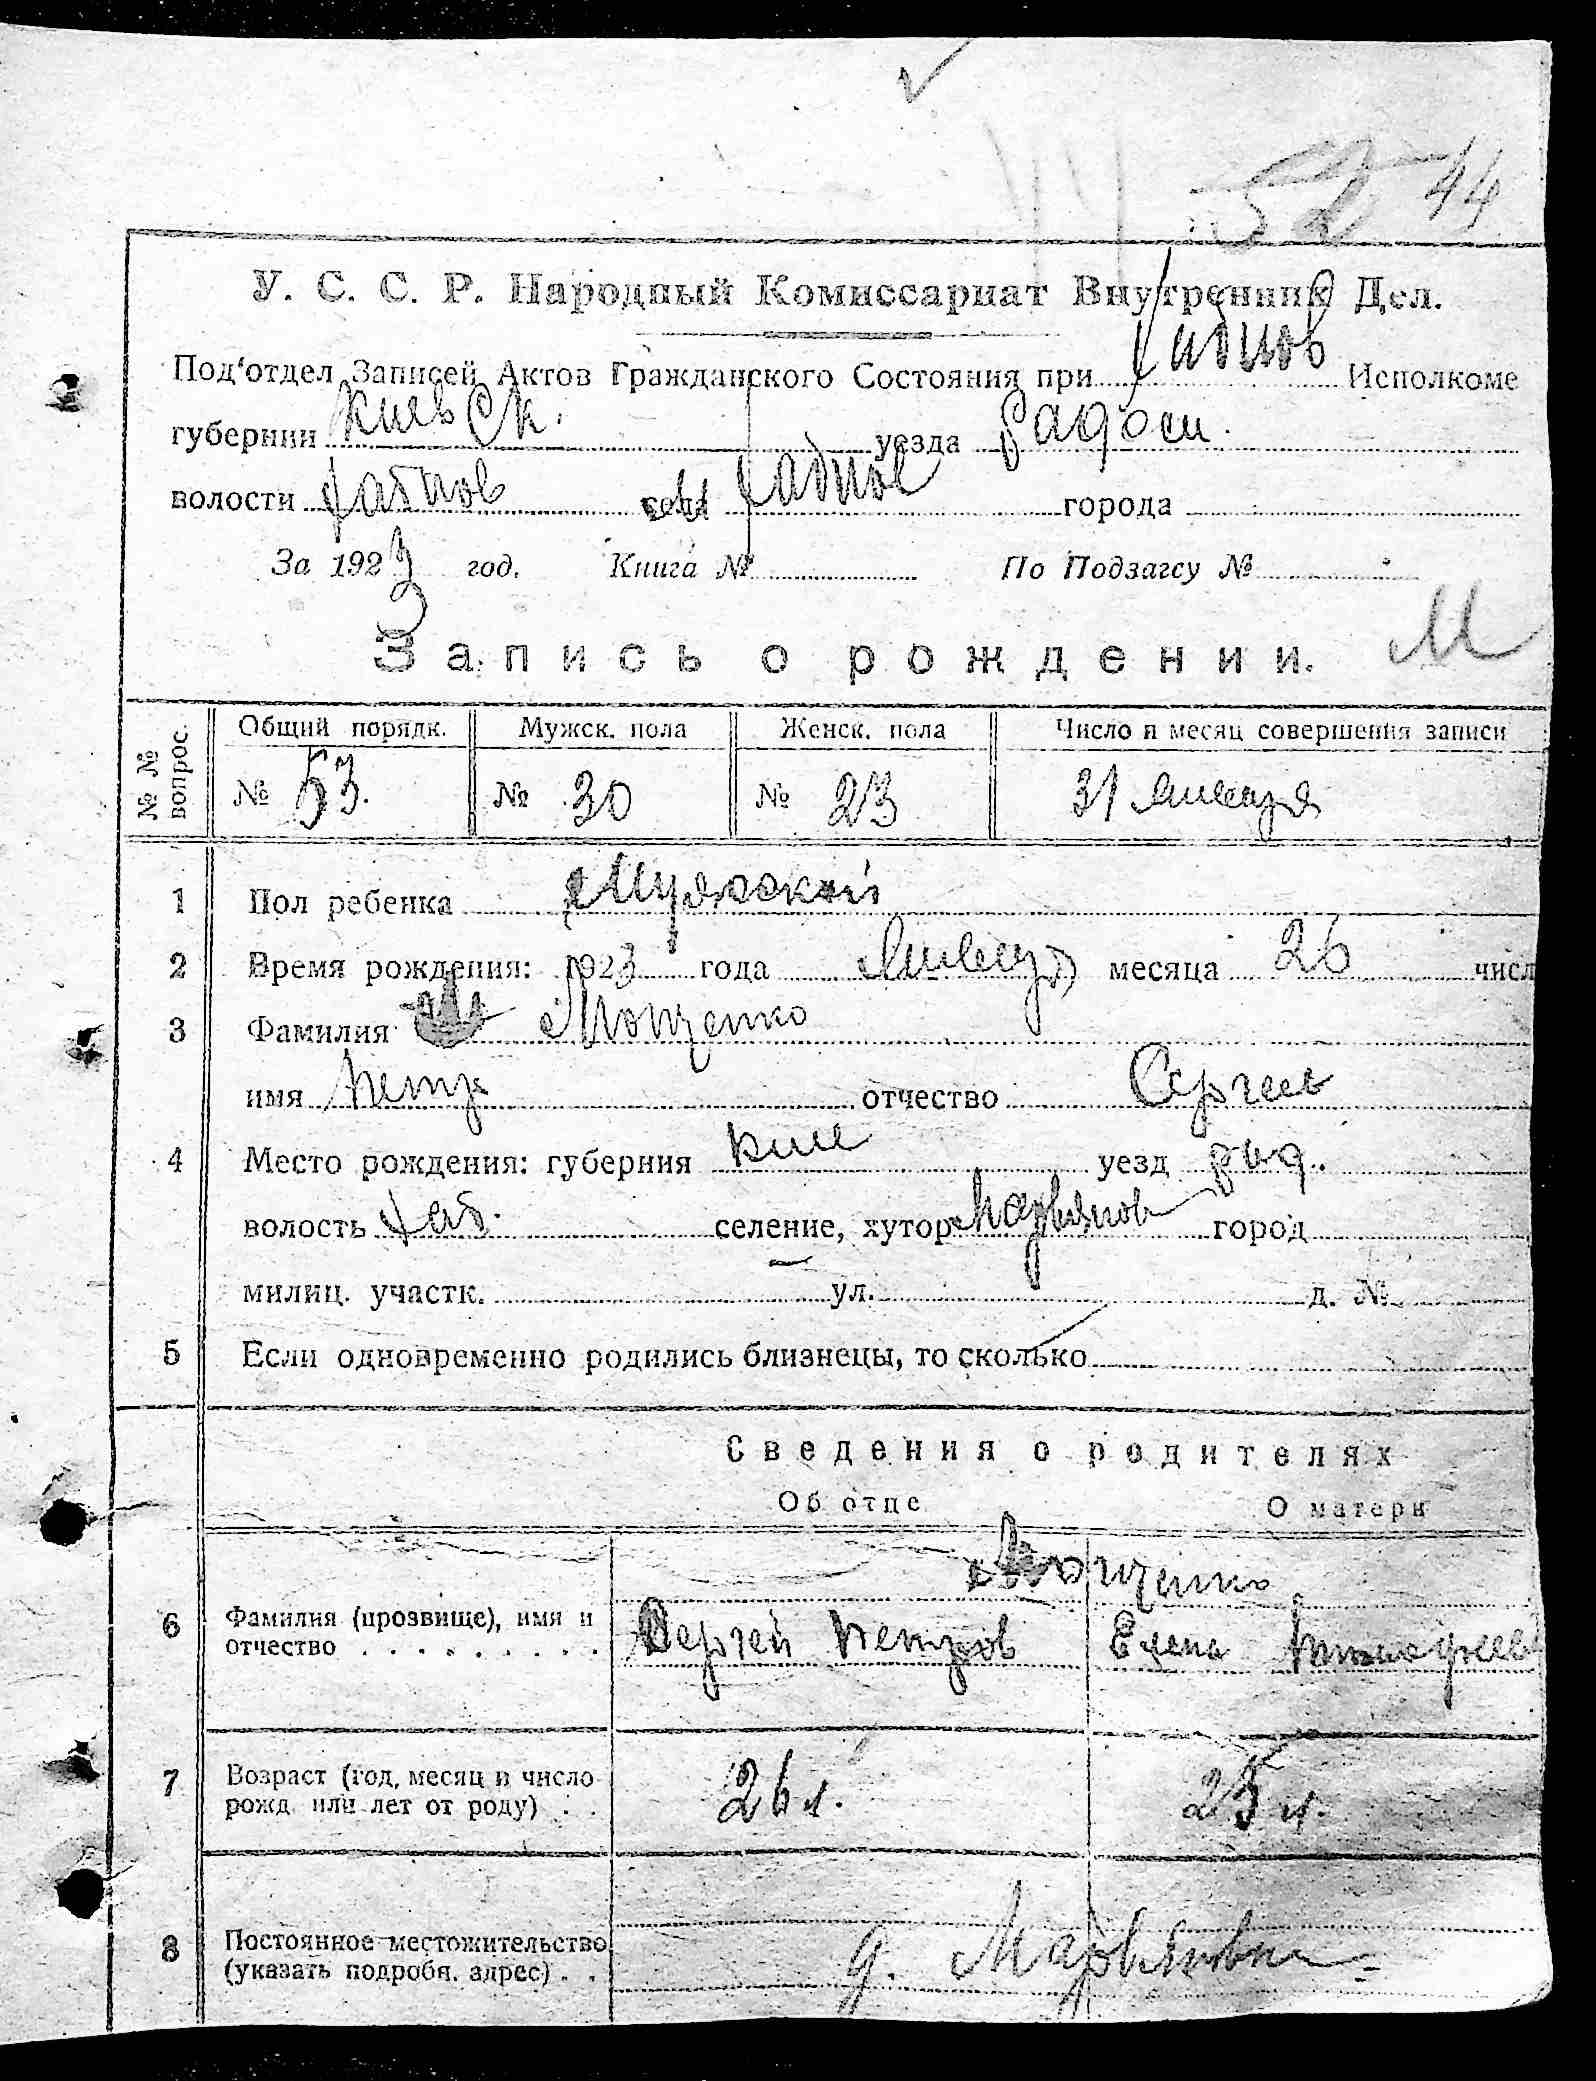 52 44
У. С. С. Р. Народный Комиссариат Внутренних Дел.
Под'отдел Записей Актов Гражданского Состояния при Хабнов Исполкоме
губернии Киевск. уезда Радом.
волости Хабнов села Хабное города
За 1923 год. Книга № По Подзагсу №
Запись о рождении. М
№ № вопрос. Общий порядк. Мужск. пола Женск. пола Число и месяц совершения записи
№ 53. № 30 № 23 31 Января
1 Пол ребенка Мужской
2 Время рождения: 1923 года Января месяца 26 числ
3 Фамилия Мощенко
имя Петр отчество Сергеев
4 Место рождения: губерния Кие уезд рад.
волость Хаб. селение, хутор Марьянов город
милиц. участк. ул. д. №
5 Если одновременно родились близнецы, то сколько
Сведения о родителях
Об отце О матери
Мощенко
6 Фамилия (прозвище), имя и Сергей Петров Елена
отчество
7 Возраст (год, месяц и число 26 л. 25 л.
рожд. или лет от роду)
8 Постоянное местожительство д. Марьяновка
(указать подробн. адрес)